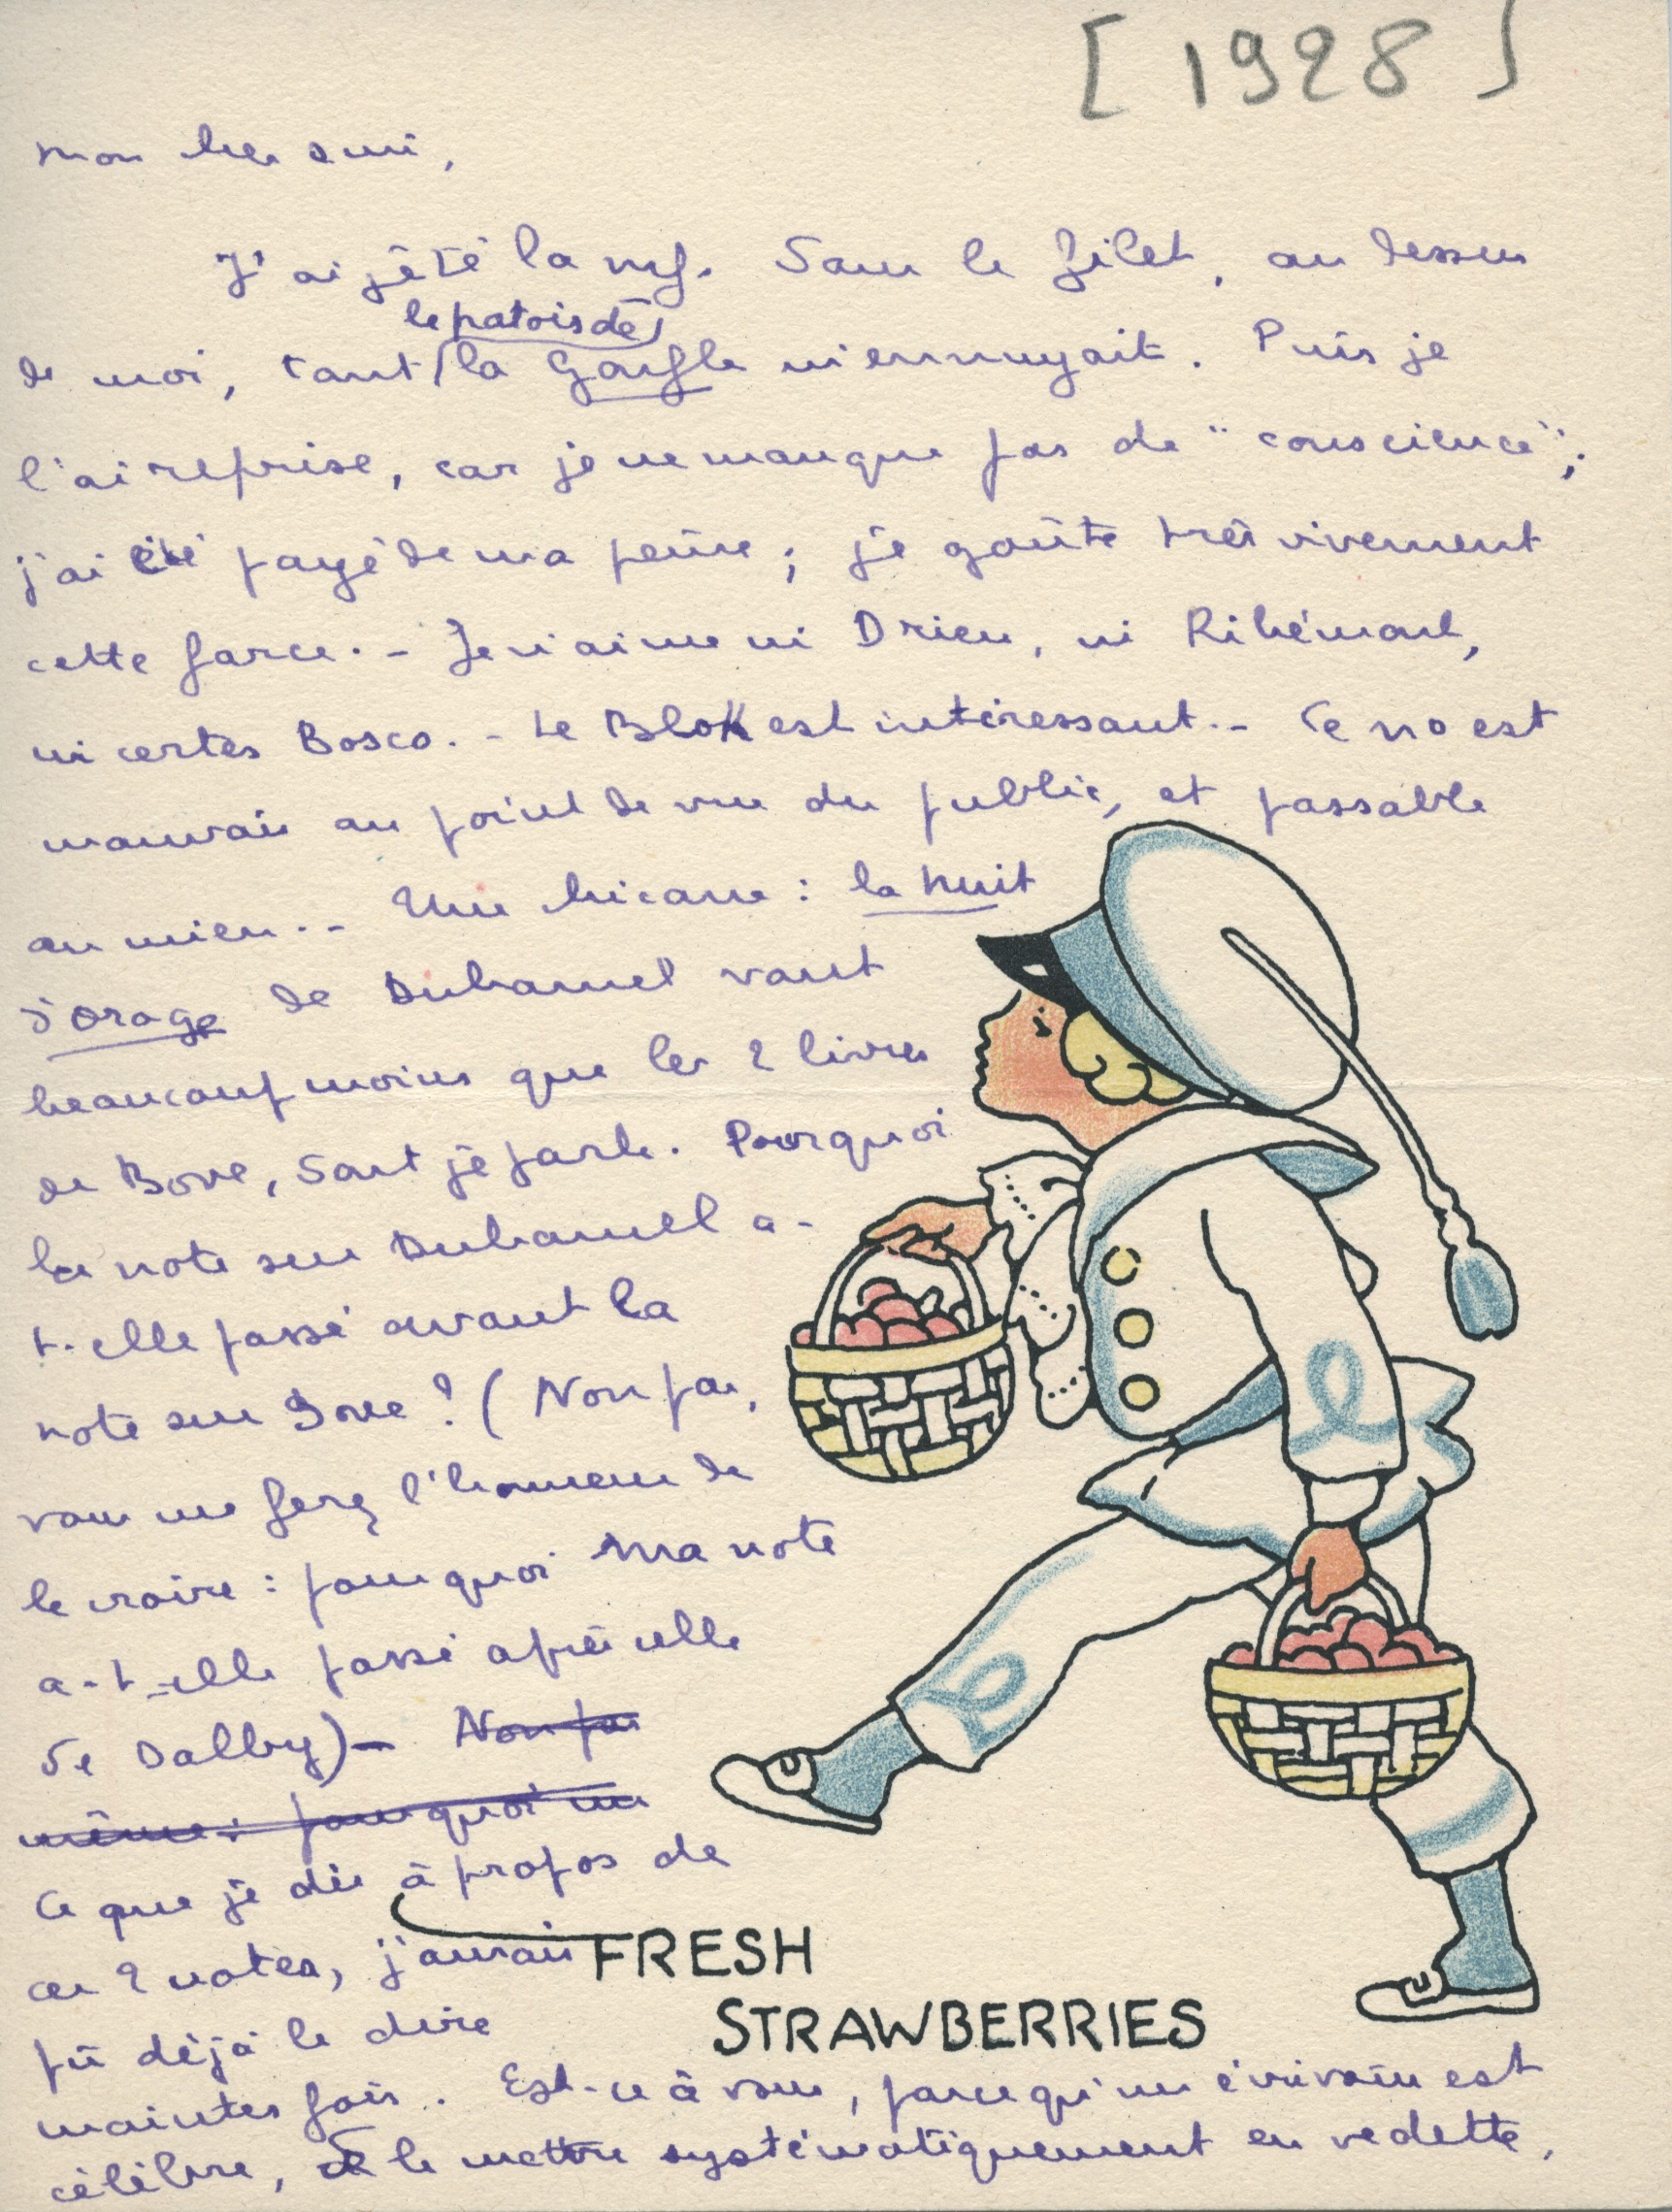 [1928]
mon cher ami,
J'ai jeté la nrf. Dans le filet, au dessus
le patois de
de moi, tant la Gonfle m'ennuyait. Puis je
l'ai reprise, car je ne manque pas de "conscience";
j'ai été payé de ma peine ; je goûte très vivement
cette farce. - Je n'aime ni Drieu, ni Ribémont,
ni certes Bosco. - Le Blok est intéressant. - Ce no est
mauvais au point de vue du public, et passable
au mien. - Une chicane : la nuit
d'orage de Duhamel vaut
beaucoup moins que les 2 livres
de Bove, dont je parle. Pourquoi
la note sur Duhamel a-
t-elle passé avant la
note sur Bove ? ( Non pas,
vous me ferez l'honneur de
le croire : pourquoi ma note
a-t-elle passé après celle
de Dalby) - Non pas
même : pourquoi ma
Ce que je dis à propos de
ces 2 notes, j'aurais
pu déjà le dire
FRESH
STRAWBERRIES
maintes fois. Est-ce à vous, parce qu'un écrivain est
célèbre, de le mettre systématiquement en vedette,